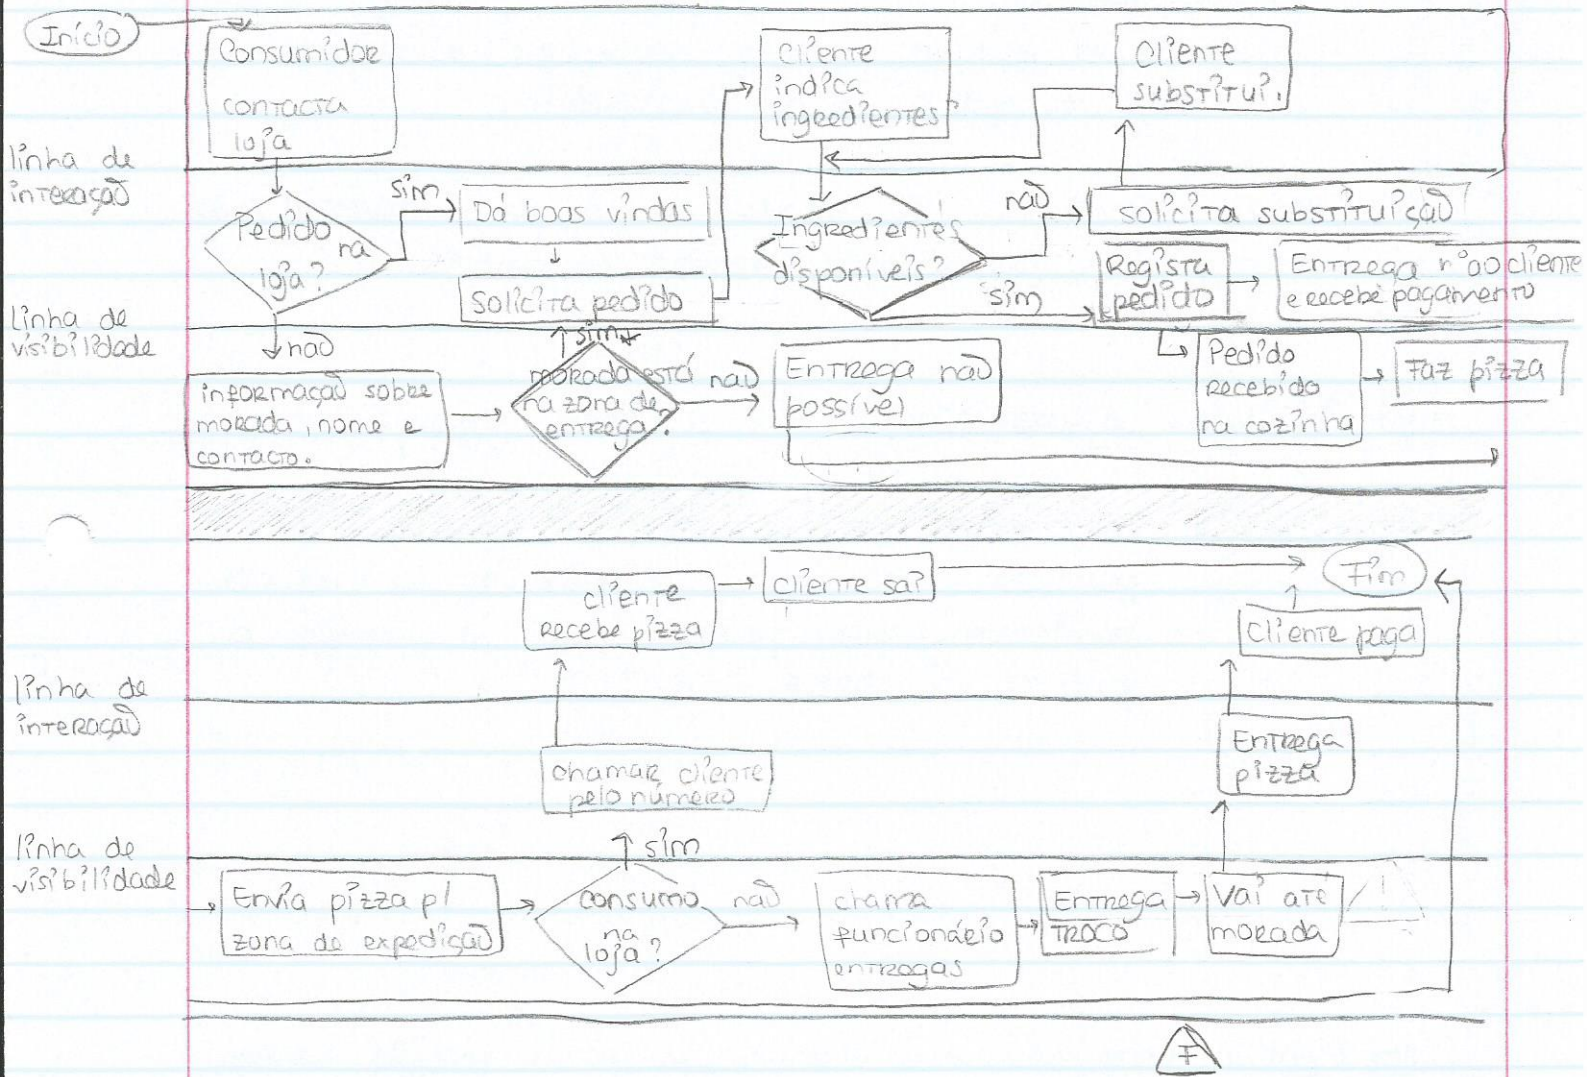 Início
Consumidor
contacta
loja
Cliente
indica
ingredientes
Cliente
substitui.
linha de
interação
Pedido
na
loja?
sim
Dá boas vindas
Solicita pedido
Ingredientes
disponíveis?
não
solicita substituição
sim
Regista
pedido
Entrega nº ao cliente
e recebe pagamento
linha de
visibilidade
não
informação sobre
morada, nome e
contacto.
sim
morada está
na zona de
entrega?
não
Entrega não
possível
Pedido
recebido
na cozinha
Faz pizza
cliente
recebe pizza
cliente sai
Fim
Cliente paga
linha de
interação
chamar cliente
pelo número
Entrega
pizza
linha de
visibilidade
sim
Envia pizza p/
zona de expedição
consumo
na
loja?
não
chama
funcionário
entregas
Entrega
TROCO
Vai até
morada
F